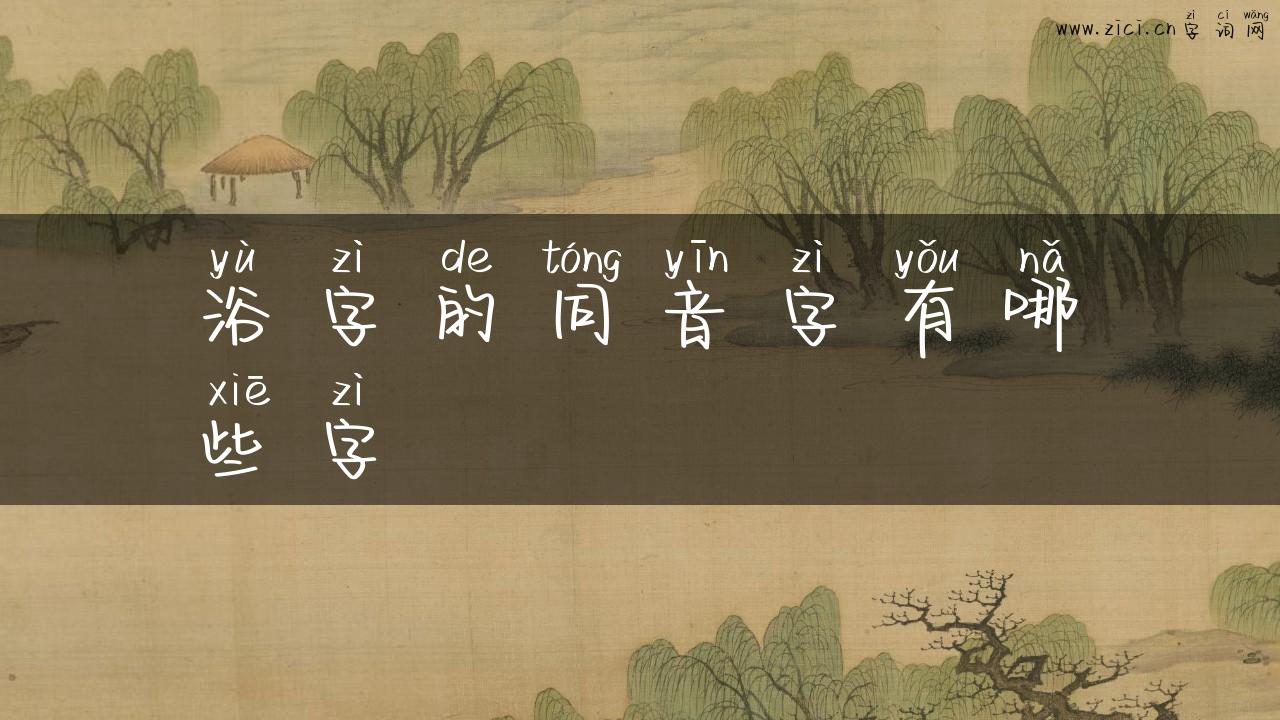 zì cí wǎng
www.zici.cn字词网
yù zì de tóng yīn zì yǒu nǎ
浴字的同音字有哪
xiē zì
些字